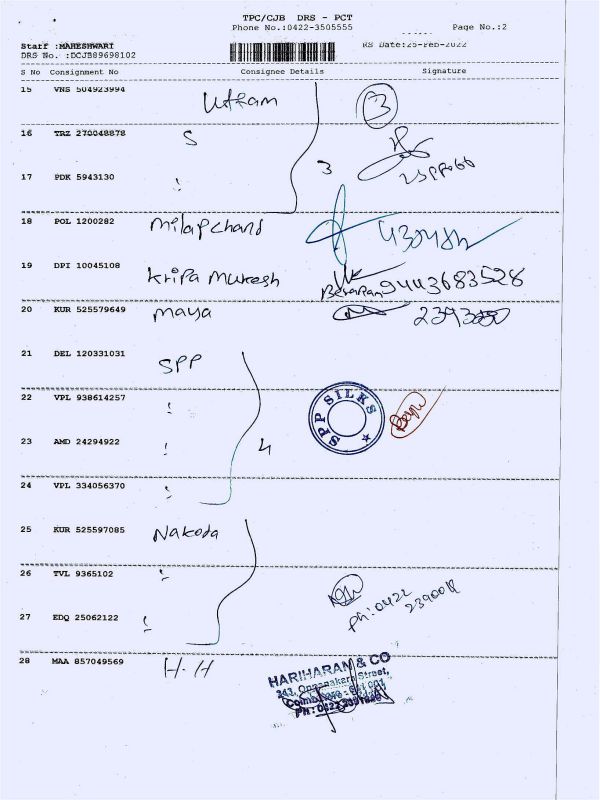 TPC/CJB DRS - PCT
Phone No.:0422-3505555 Page No.:2
Staff :MAHESHWARI RS Date:25-Feb-2022
DRS No. :DCJB89698102
S No Consignment No Consignee Details Signature
15 VNS 504923994 Uttam 3
16 TRZ 270048878 S
3
17 PDK 5943130 "
18 POL 1200282 Milapchand
19 DPI 10045108 Kripa Mukesh 9443683528
20 KUR 525579649 Maya
21 DEL 120331031 SPP
22 VPL 938614257 " SPP SILKS
23 AMD 24294922 " 4
24 VPL 334056370 "
25 KUR 525597085 Nakoda
26 TVL 9365102 "
ph: 0422
27 EDQ 25062122 "
28 MAA 857049569 H.H
HARIHARAN & CO
343, Oppanakara Street,
Coimbatore - 641 001
Ph : 0422